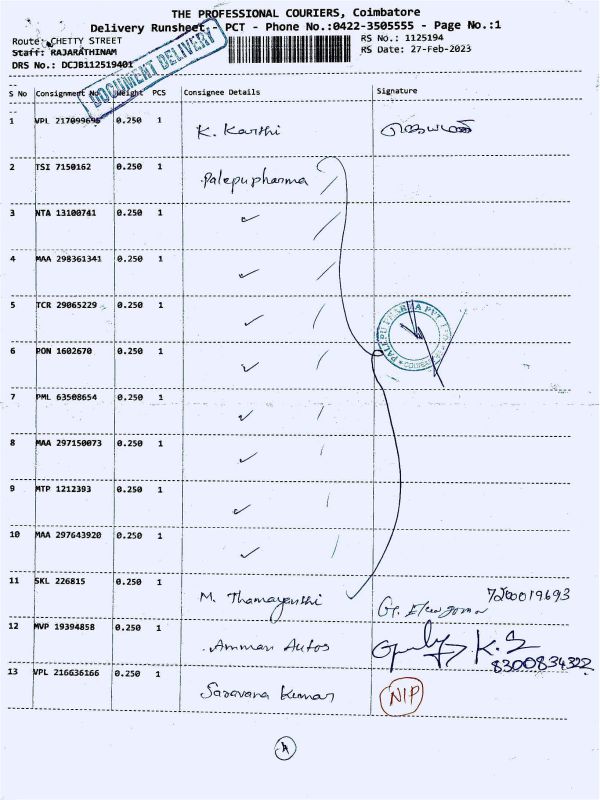 THE PROFESSIONAL COURIERS, Coimbatore
Delivery Runsheet - PCT - Phone No.:0422-3505555 - Page No.:1
Route: CHETTY STREET
RS No.: 1125194
Staff: RAJARATHINAM
RS Date: 27-Feb-2023
DRS No.: DCJB112519401
DOCUMENT DELIVERY
S No Consignment No Weight PCS Consignee Details Signature
1 VPL 217099696 0.250 1 K. Karthi
2 TSI 7150162 0.250 1 Palepu pharma /
3 NTA 13100741 0.250 1 ✓ /
4 MAA 298361341 0.250 1 ✓ /
5 TCR 29065229 0.250 1 ✓ /
PALEPU PHARMA PVT LTD
6 PON 1602670 0.250 1 ✓ /
7 PML 63508654 0.250 1 ✓ /
8 MAA 297150073 0.250 1 ✓ /
9 MTP 1212393 0.250 1 ✓ /
10 MAA 297643920 0.250 1 ✓ /
11 SKL 226815 0.250 1 M. Thamayanthi 7200019693
12 MVP 19394858 0.250 1 Amman Autos K.S
8300834322
13 VPL 216636166 0.250 1 Saravana Kumar NIP
A